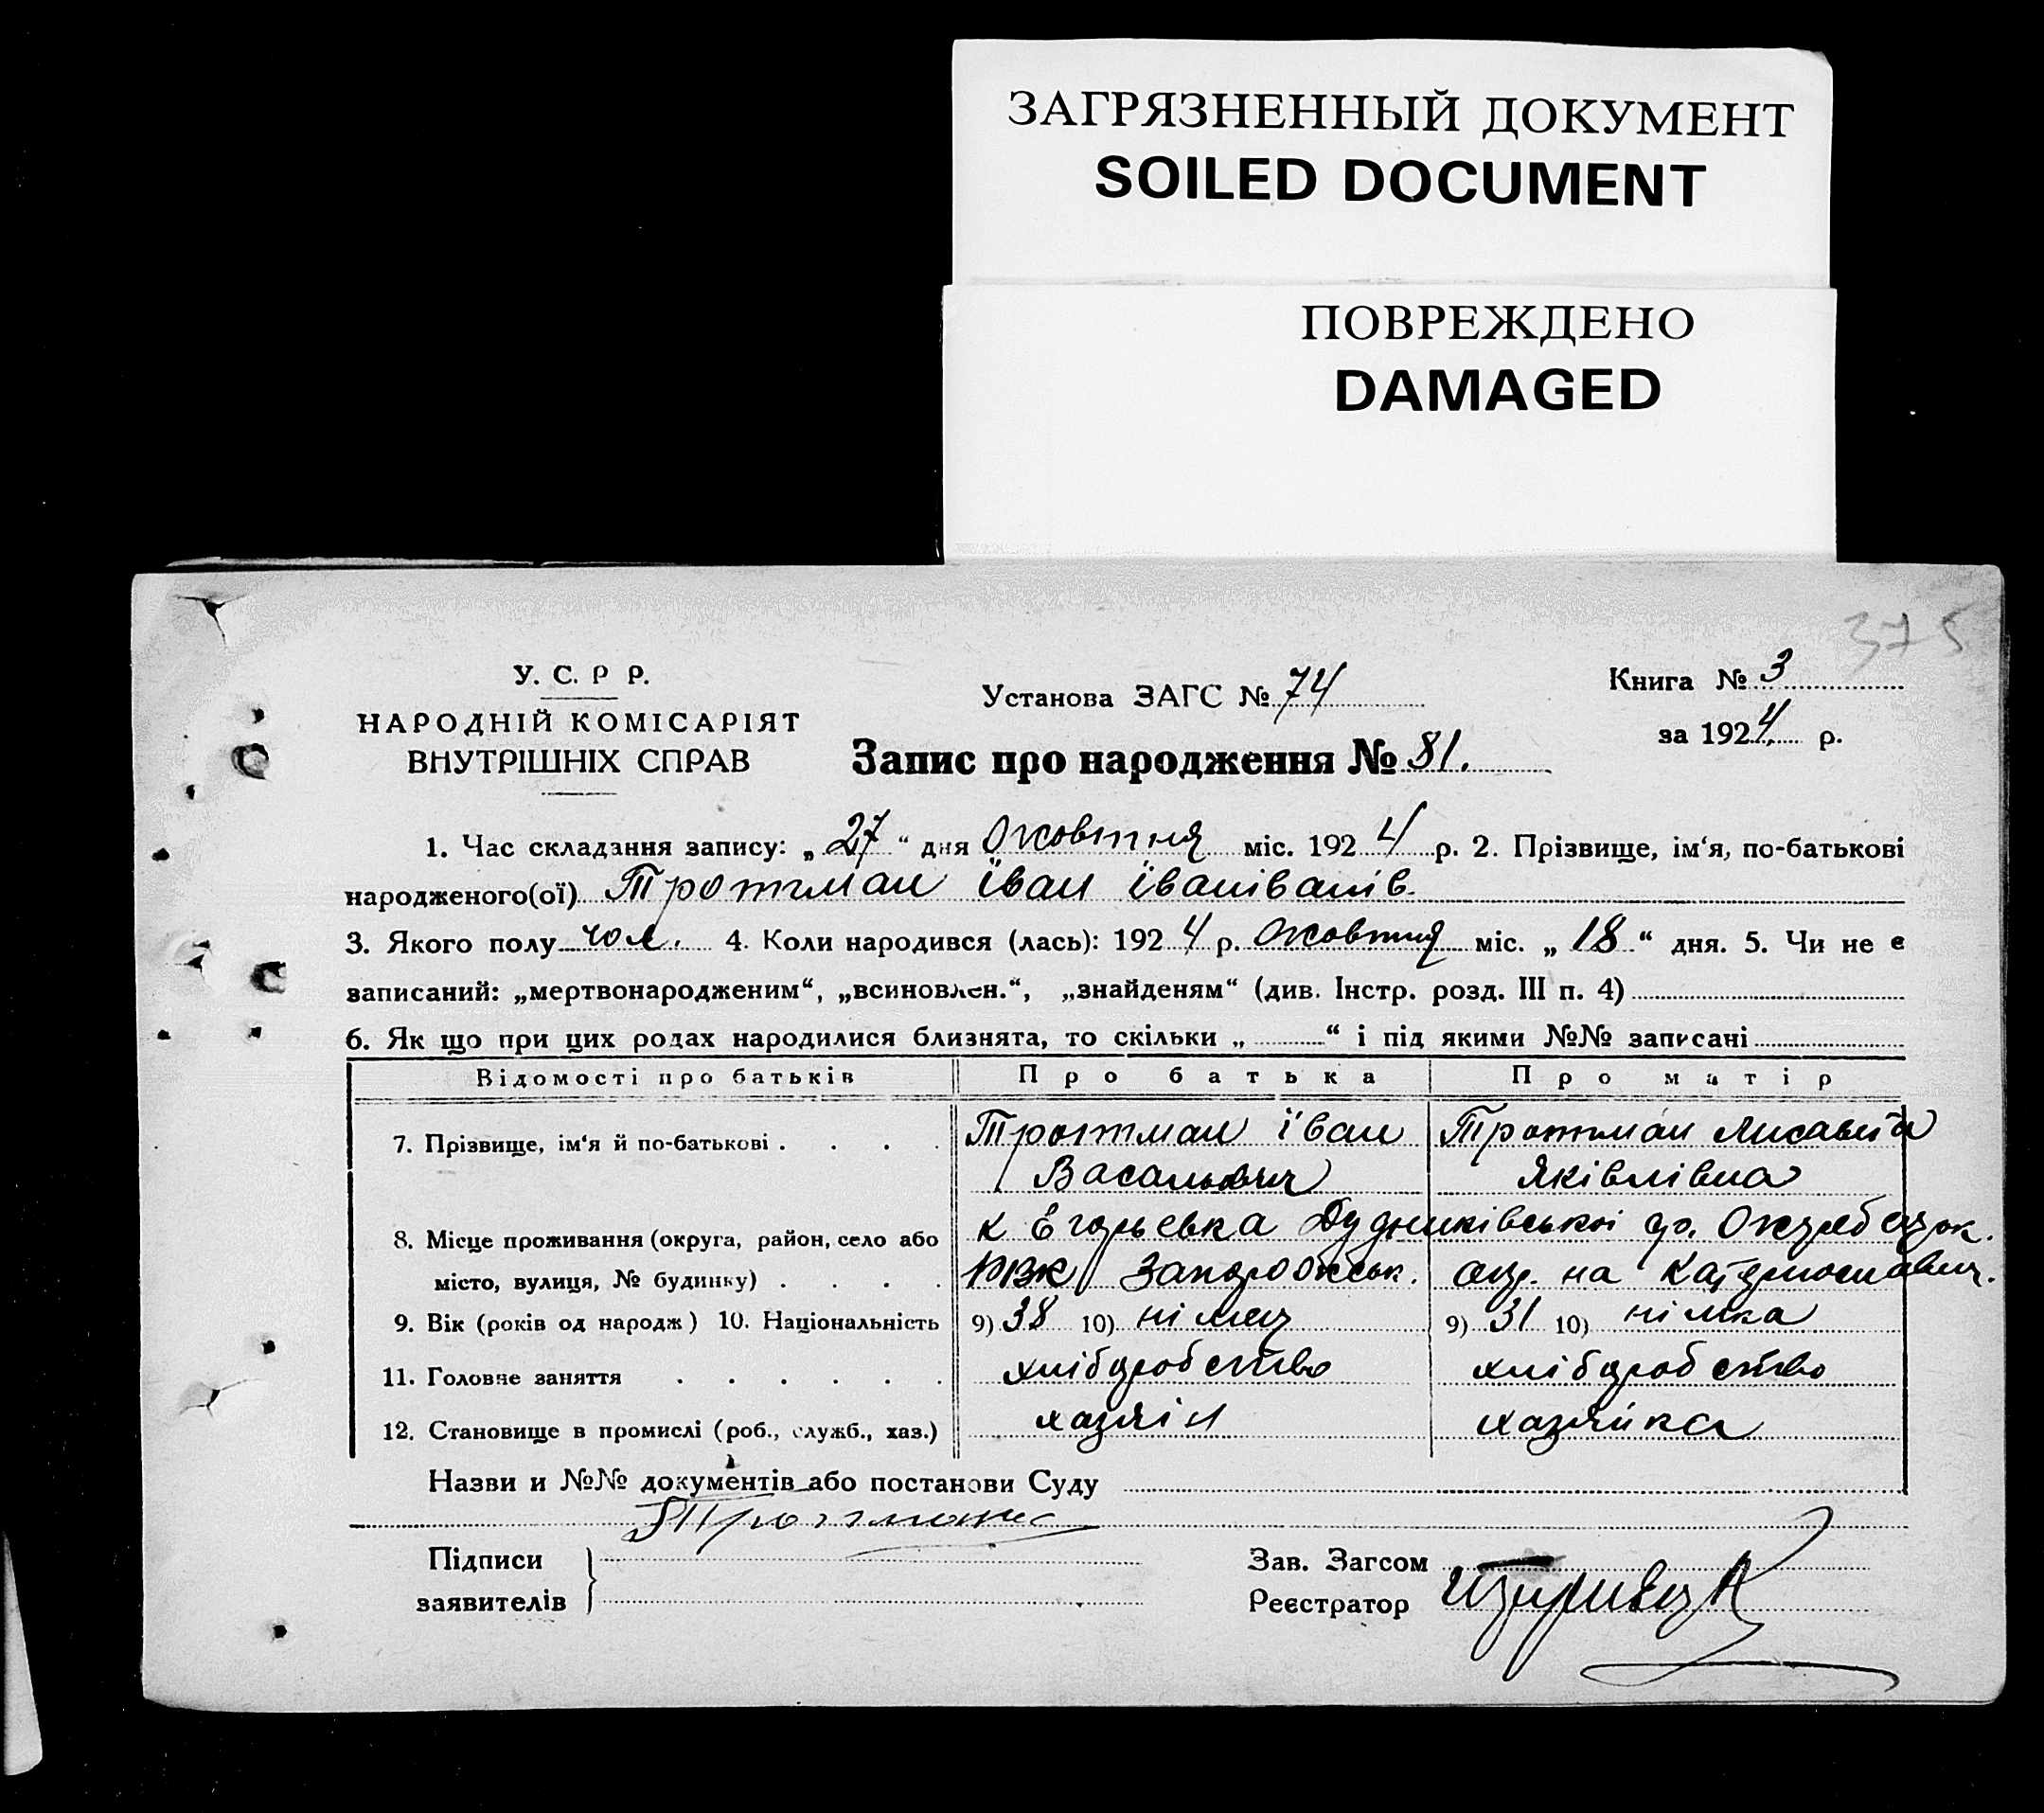 ЗАГРЯЗНЕННЫЙ ДОКУМЕНТ
SOILED DOCUMENT
ПОВРЕЖДЕНО
DAMAGED
375
У. С. Р Р.
НАРОДНІЙ КОМІСАРІЯТ
ВНУТРІШНІХ СПРАВ
Установа ЗАГС № 74
Книга № 3
за 1924 р.
Запис про народження № 81.
1. Час складання запису: „ 27 “ дня Жовтня міс. 1924 р. 2. Прізвище, ім‘я, по-батькові
народженого(ої) Тротман Іван
3. Якого полу чол. 4. Коли народився (лась): 1924 р. Жовтня міс. „ 18 “ дня. 5. Чи не є
записаний: „мертвонародженим“, „всиновлен.“, „знайденям“ (див. Інстр. розд. III п. 4)
6. Як що при цих родах народилися близнята, то скільки „ “ і під якими №№ записані
Відомості про батьків Про батька Про матір
7. Прізвище, ім‘я й по-батькові . . . . Тротман Іван Тротман
Яківлівна
8. Місце проживання (округа, район, село або к Єгорьевка
місто, вулиця, № будинку) . . . . РВК Запорожськ. окр. на
9. Вік (років од народж) 10. Національність 9) 38 10) німец 9) 31 10) німка
11. Головне заняття . . . . . . хліборобство хліборобство
12. Становище в промислі (роб., служб., хаз.) хазяін хазяйка
Назви и №№ документів або постанови Суду
Підписи
заявителів
Зав. Загсом
Реєстратор